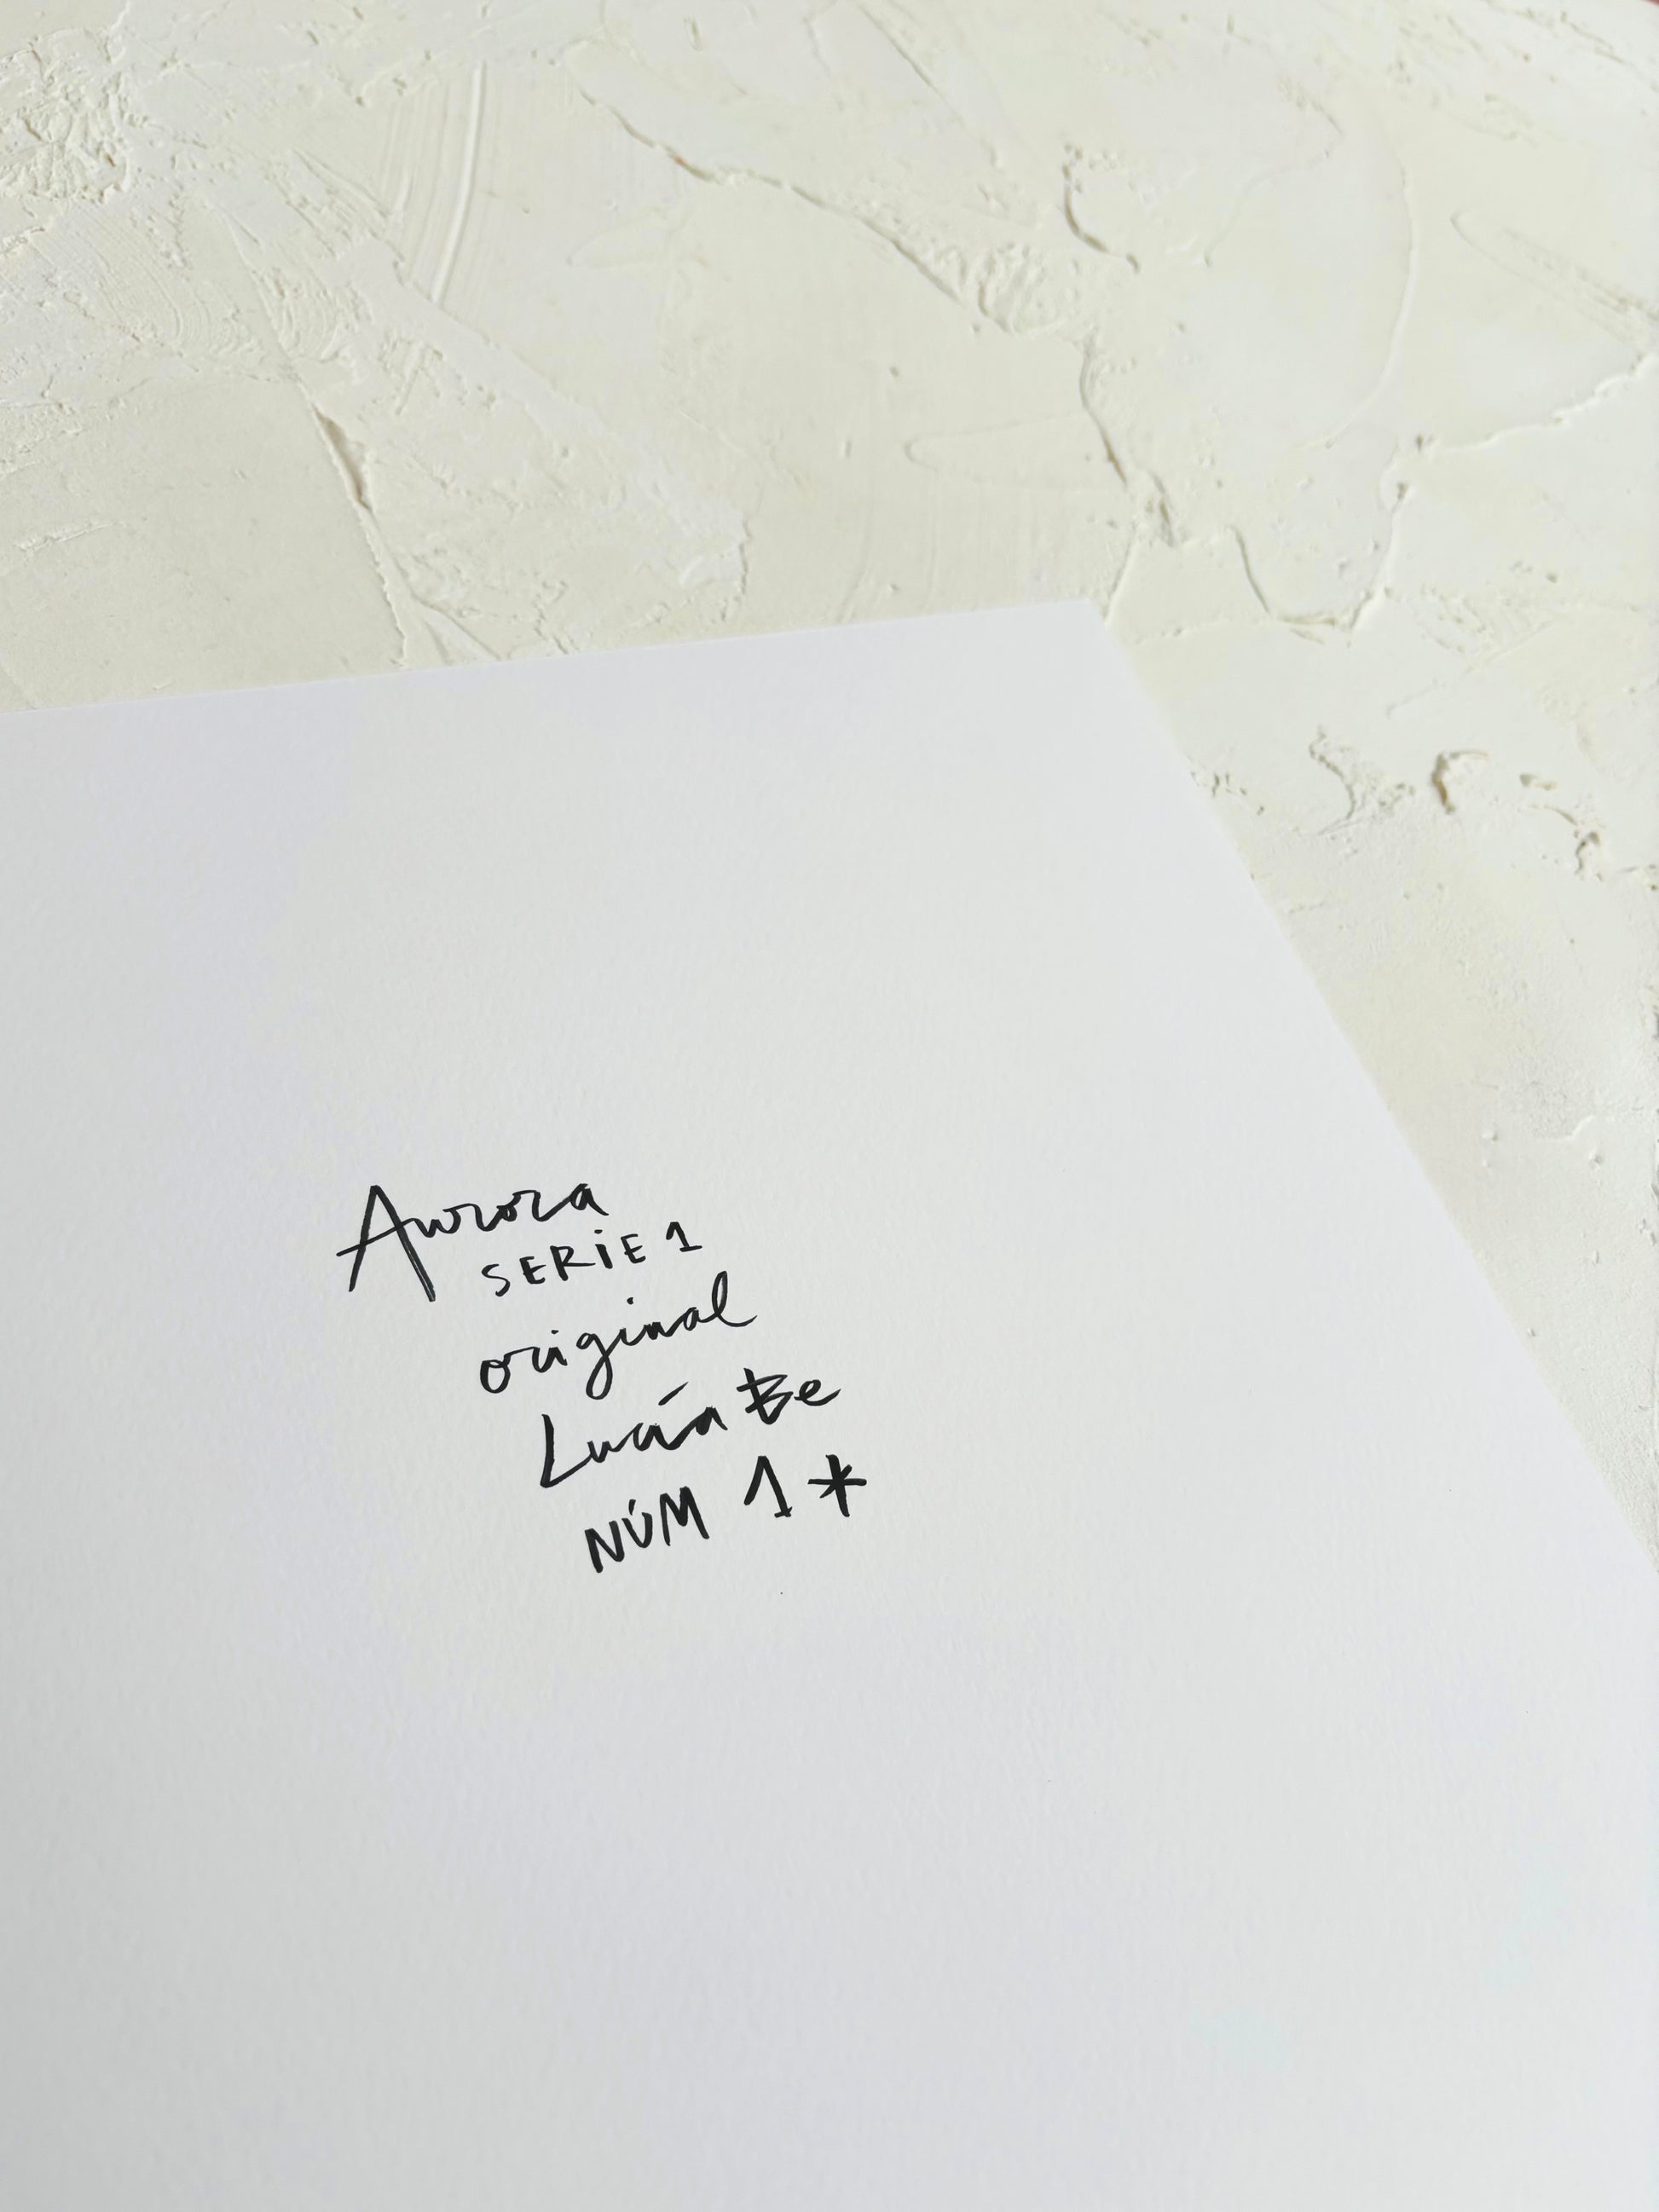 Aurora
SERiE 1
original
Lucía Be
NÚM 1*